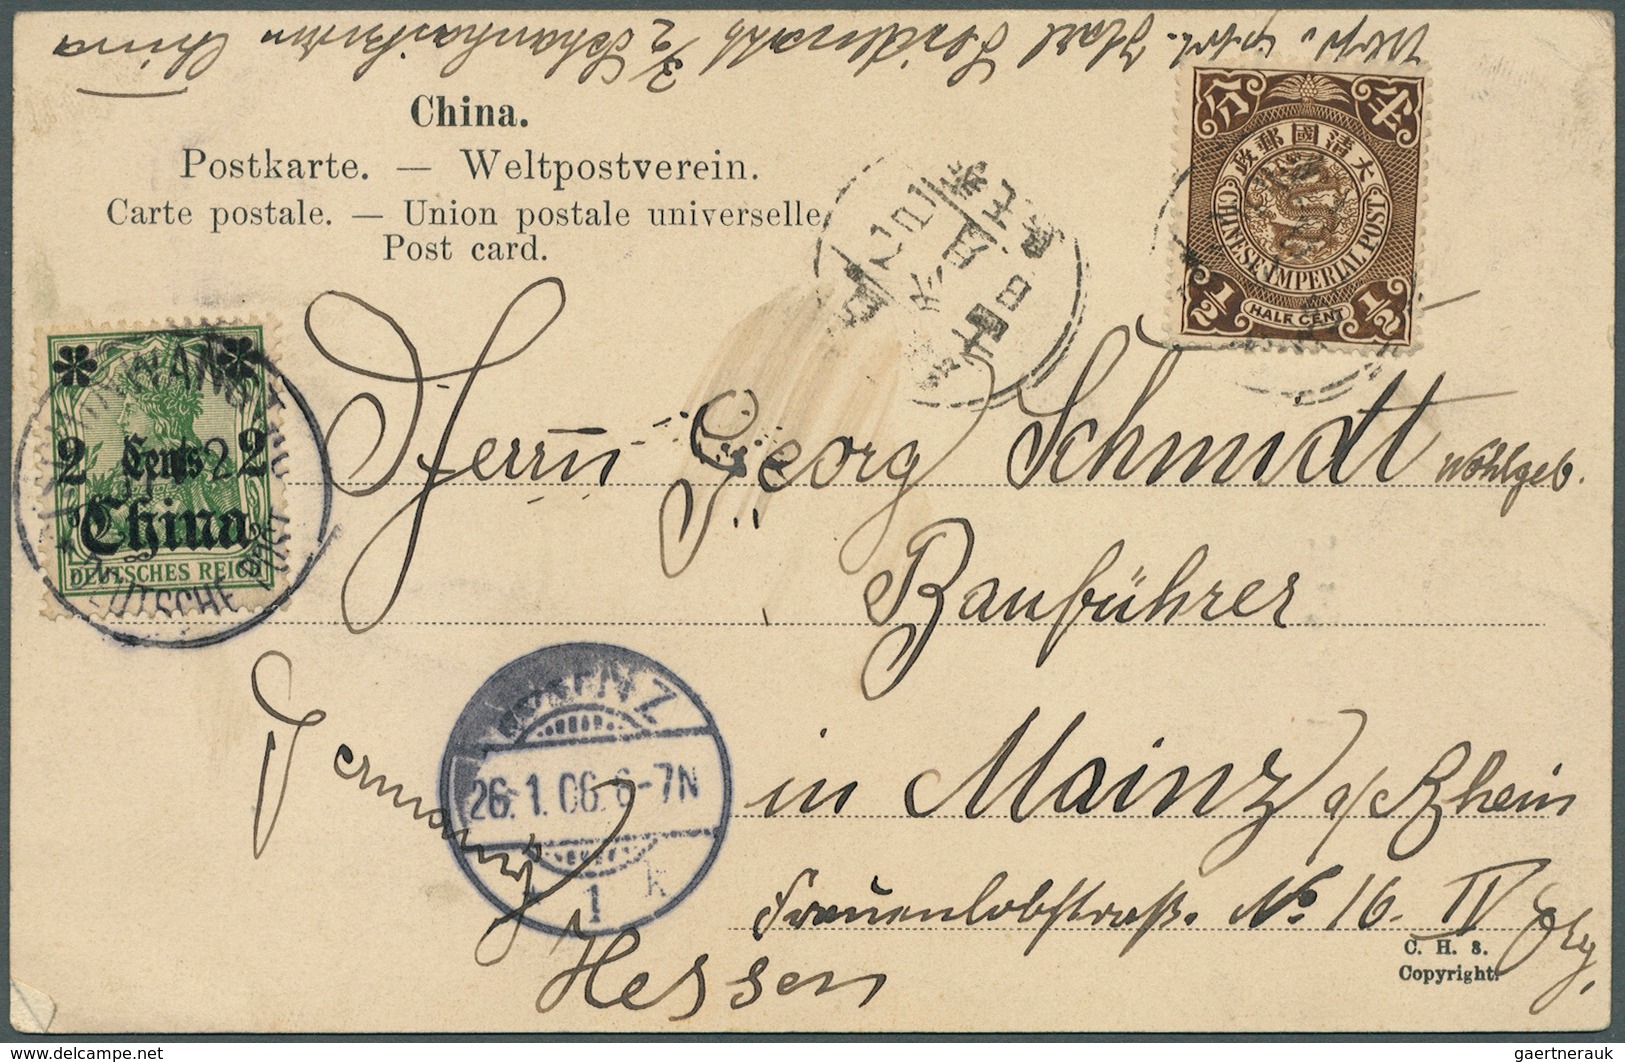 China
China.
Postkarte. — Weltpostverein.
Carte postale. — Union postale universelle
Post card.
分 半
大清國郵政
CHINESE IMPERIAL POST
½ HALF CENT ½
2 Cents 2
China
DEUTSCHES REICH
DEUTSCHE POST
Herrn Georg Schmidt Wohlgeb.
Bauführer
in Mainz a/Rhein
Frauenlobstraße. No. 16. IV
Germany
Hessen
26.1.06. 6-7N
1 k
C. H. 8.
Copyright.
delcampe.net
gaertnerauk